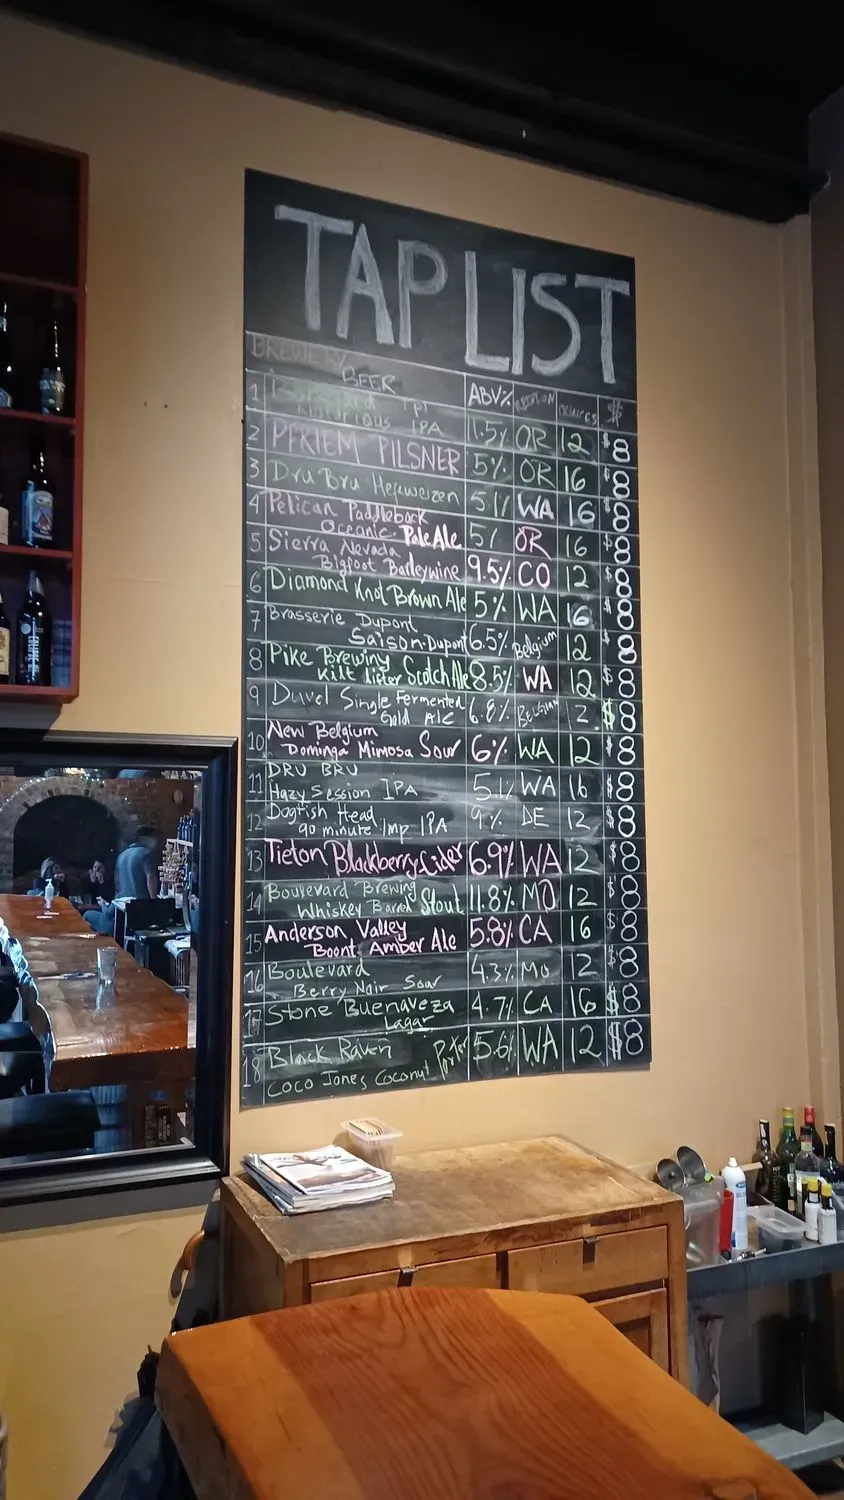 TAP LIST
BREWERY
BEER ABV% REGION OUNCES $
1 Boneyard
Notorious IPA 11.5% OR 12 $8
2 PFRIEM PILSNER 5% OR 16 $8
3 Dru Bru Hefeweizen 5.1% WA 16 $8
4 Pelican Paddleback
Oceanic Pale Ale 5% OR 16 $8
5 Sierra Nevada
Bigfoot Barleywine 9.5% CO 12 $8
6 Diamond Knot Brown Ale 5% WA 16 $8
7 Brasserie Dupont
Saison Dupont 6.5% Belgium 12 $8
8 Pike Brewing
Kilt Lifter Scotch Ale 8.5% WA 12 $8
9 Duvel Single Fermented
Gold Ale 6.8% BELGIAN 2 $8
10 New Belgium
Dominga Mimosa Sour 6% WA 12 $8
11 DRU BRU
Hazy Session IPA 5.1% WA 16 $8
12 Dogfish Head
90 minute Imp IPA 9% DE 12 $8
13 Tieton Blackberry Cider 6.9% WA 12 $8
14 Boulevard Brewing
Whiskey Barrel Stout 11.8% MO 12 $8
15 Anderson Valley
Boont Amber Ale 5.8% CA 16 $8
16 Boulevard
Berry Noir Sour 4.3% Mo 12 $8
17 Stone Buenaveza
Lagar 4.7% CA 16 $8
18 Black Raven Porter 5.6% WA 12 $8
Coco Jones Coconut